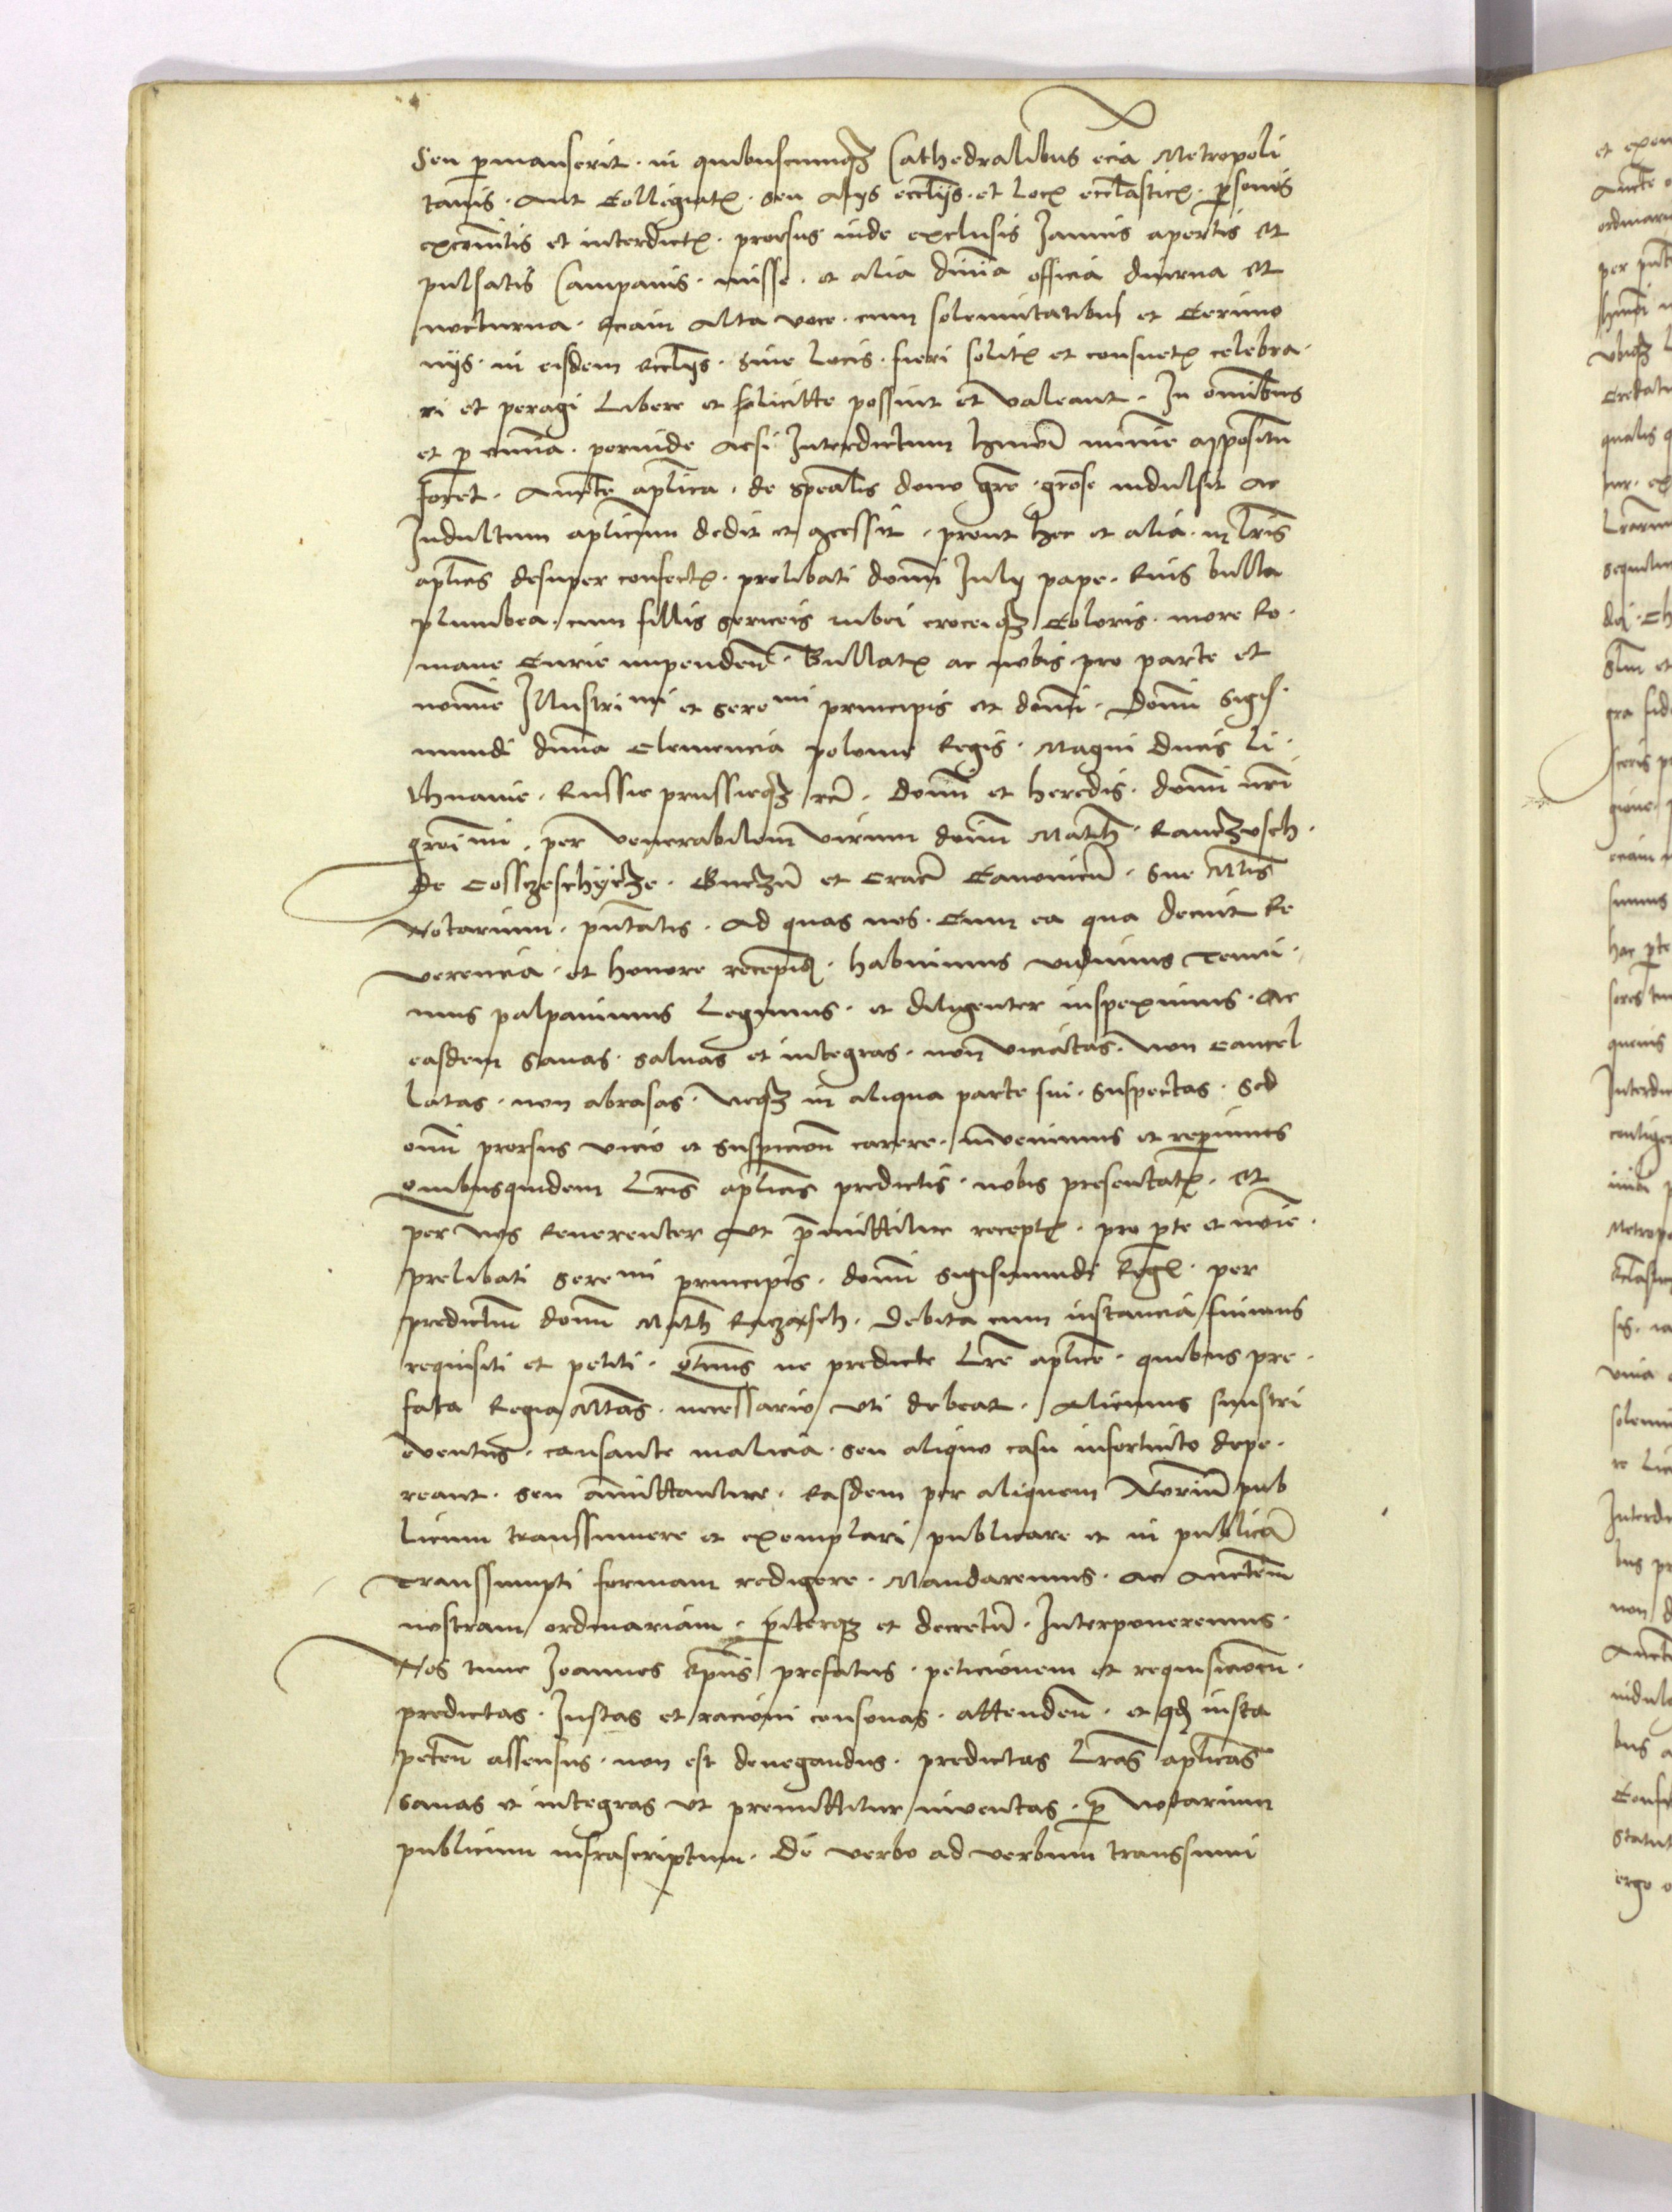 Seu pmanserit · in quibuscumqꝫ Cathedralibus ecia Metropoli
tanis · Aut Collegiatꝭ · seu Aliis eccliis · et Locꝭ eccl̄asticꝭ · psonis
excoīcatis et interdictꝭ · prorsus inde exclusis Januis apertis et
pulsatis Campanis · misse · et alia diuīa officia diurna et
nocturna · eciam Alta voce · cum solemnitatibus et Cerimo
niis · in eisdem eccl̄iis · siue locis · fieri solitꝭ et consuetꝭ celebra ·
ri et peragi Libere et felicitte possint et valeant · In omībus
et p omnīa · perinde Acsi Interdictum hmōi mīnie appositū
foret · Auctte aplica · de speālis dono grē · grōse indulsit Ac
Indultum aplicum dedit et ꝯcessit · prout hec et alia · in lr̄is
aplicis desuper confectꝭ · prelibati domī Julij pape · Eius bulla
plumbea · cum fillis sericeis rubei croceiqꝫ Coloris · more Ro ·
mane Curie impendeñ · Bullatꝭ ac nobis pro parte et
nomine Illustri mi et sere mi principis et domī · Domī Sigis ·
mundi diuīa Clemencia polonie Regis · Magni Ducis Li ·
thuanie · Russie prussieqꝫ rc̄ · domī et heredis · domī nr̄i
gr̄oi mi · per Venerabilem virum doīm Math̄ ·
De · et Crac̄ Canonicū · Sue Mtis
Notarium · pn̄tatis · Ad quas nos · Cum ea qua decuit Re
verencia · et honore receptis · habuimus vidimus Tenui ·
mus palpauimus Legimus · et diligenter inspeximus · Ac
easdem sanas · saluas et integras · non viciatas · non cancel
latas · non abrasas · neqꝫ in aliqua parte sui · suspectas · Sed
om̄i prorsus vicio et suspicioñ carere · inuenimus et repimus
Quibusquidem Lr̄is aplicis predictis · nobis presentatꝭ · et
per nos Reuerenter Vt p̄mittitur receptꝭ · pro pte et noīe ·
prelibati sere mi principis · domī sigismundi Regꝭ · per
predictum domī Math̄ · debita cum instancia fuimus
requisiti et petiti · Qtinus ne predicte Lr̄e aplice · quibus pre ·
fata Regia Mtas · necessario vti debeat · Alicuius sinistri
euentus · causante malicia · seu aliquo casu infortuito depe ·
reant · seu amittantur · Easdem per aliquem Nōrium pub
licum transsumere et exemplari publicare et in publicā
Transsumpti formam redigere · Mandaremus · ac Aucttem
nostram ordinariam · p̄iterqꝫ et decretū · Interponeremus ·
Nos tunc Joannes Ep̄us prefatus · peticionem et requisicioñ ·
predictas · Justas et racioni consonas · attendeñ · et qꝫ iusta
peteñ assensus · non est denegandus · predictas Lr̄as aplicas
sanas et integras vt premittitur inuentas · p̄ Notarium
publicum infrascriptum · De verbo ad verbum transsumi